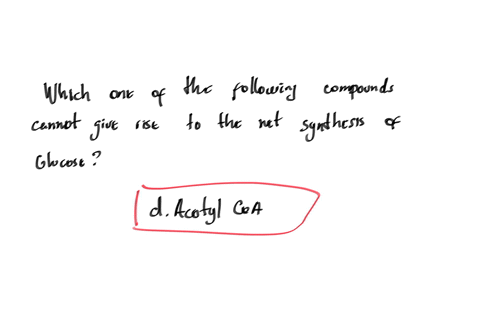 Which one of the following compounds
cannot give rise to the net synthesis of
Glucose?
d. Acotyl CoA